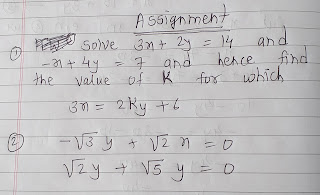 Assignment
① Solve 3x + 2y = 14 and
-x + 4y = 7 and hence find
the value of K for which
3x = 2Ky + 6
② -√3 y + √2 x = 0
√2 y + √5 y = 0